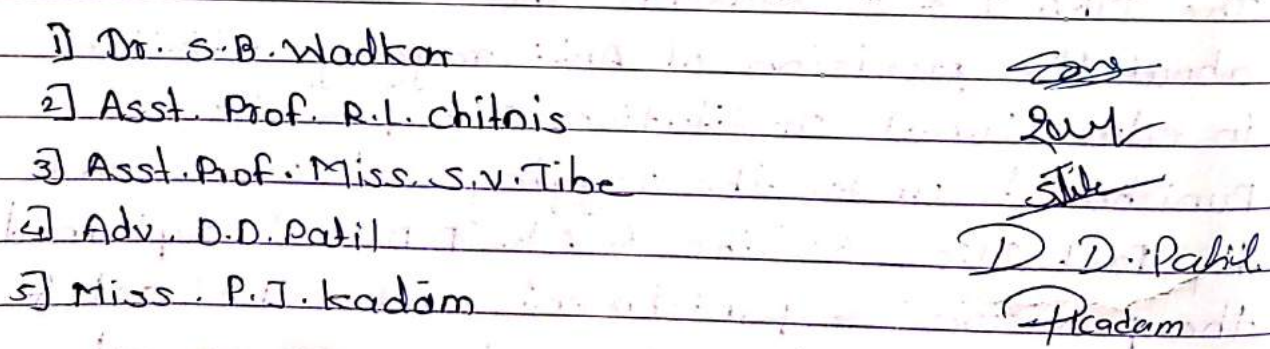 1] Dr. S.B. Wadkar
2] Asst. Prof. R.L. Chitnis
3] Asst. Prof. Miss. S.V. Tibe STibe
4] Adv. D.D. Patil D. D. Patil
5] Miss. P.J. Kadam PKadam